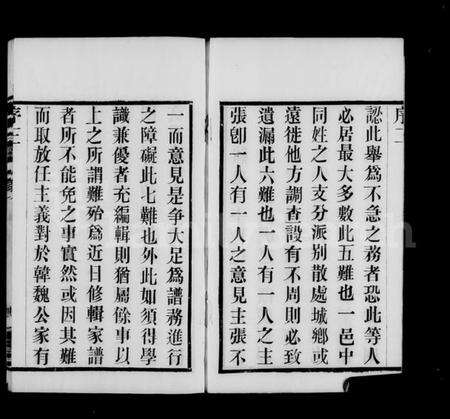 序二
訟此舉為不急之務者恐此等人
必居最大多數此五難也一邑中
同姓之人支分派別散處城鄉或
遠徙他方調查設有不周則必致
遺漏此六難也一人有一人之主
張卽一人有一人之意見主張不
一而意見是爭大足為譜務進行
之障礙此七難也外此如須得學
識兼優者充編輯則猶屬餘事以
上之所謂難殆為近日修輯家譜
者所不能免之事實然或因其難
而取放任主義對於韓魏公家有
序三